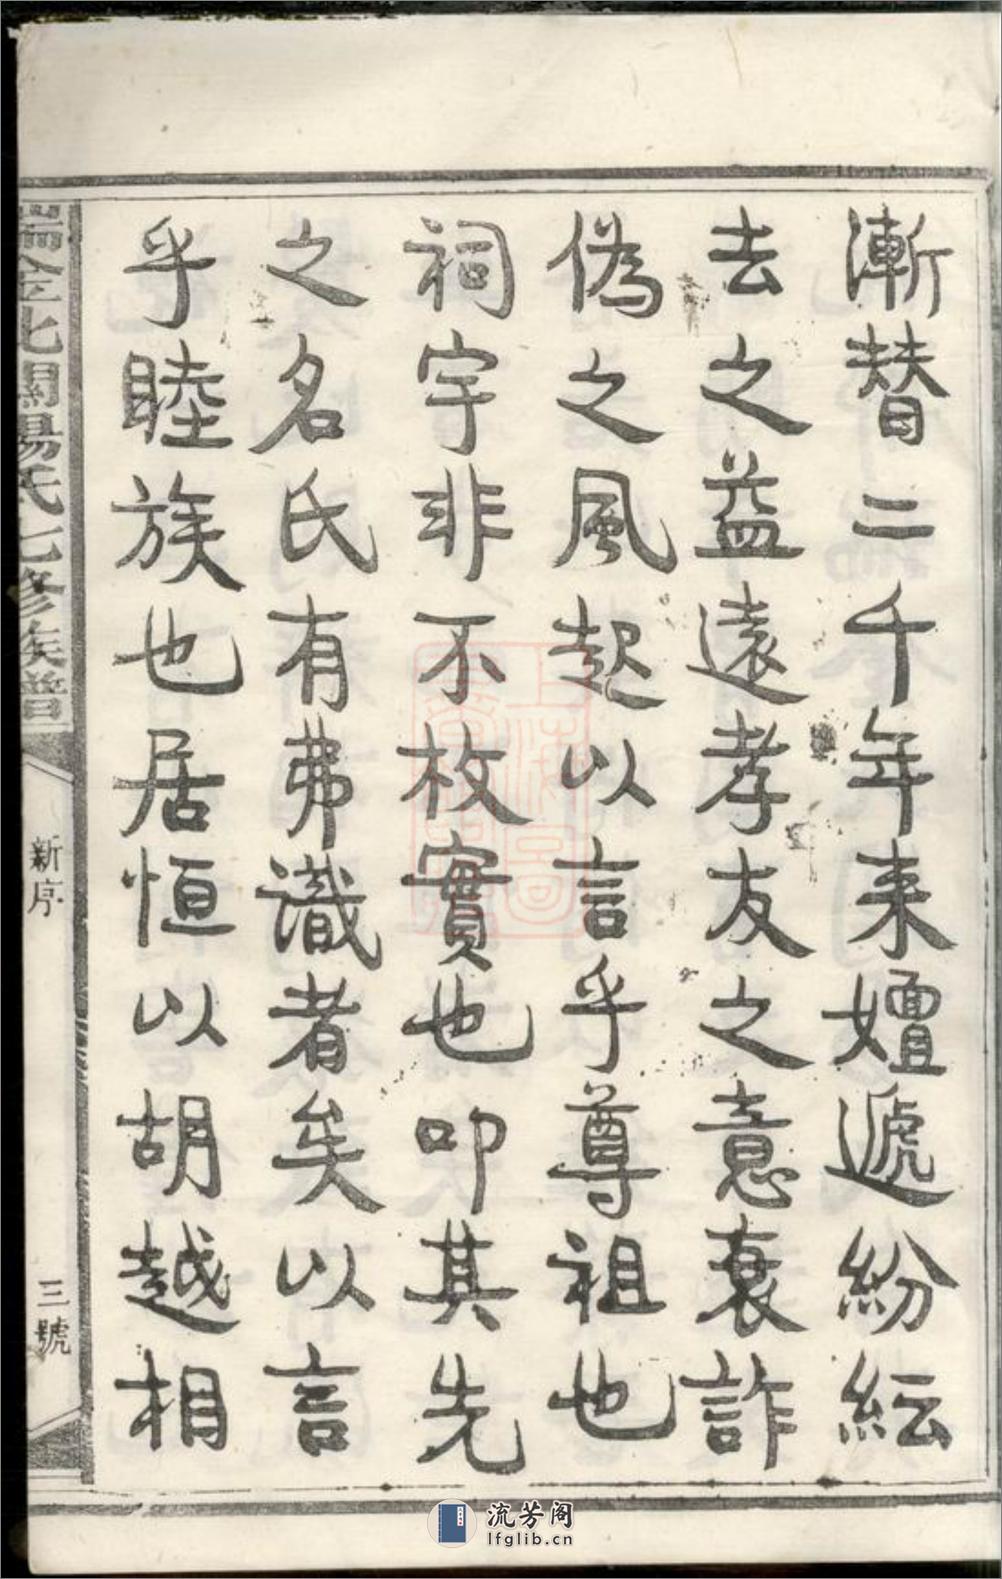 漸替二千年来嬗遞紛紜
去之益遠孝友之意衰詐
偽之風起以言乎尊祖也
祠宇非不枚實也叩其先
之名氏有弗識者矣以言
乎睦族也居恒以胡越相
瑞金北關楊氏七修族譜
新序
三號
流芳阁
lfglib.cn